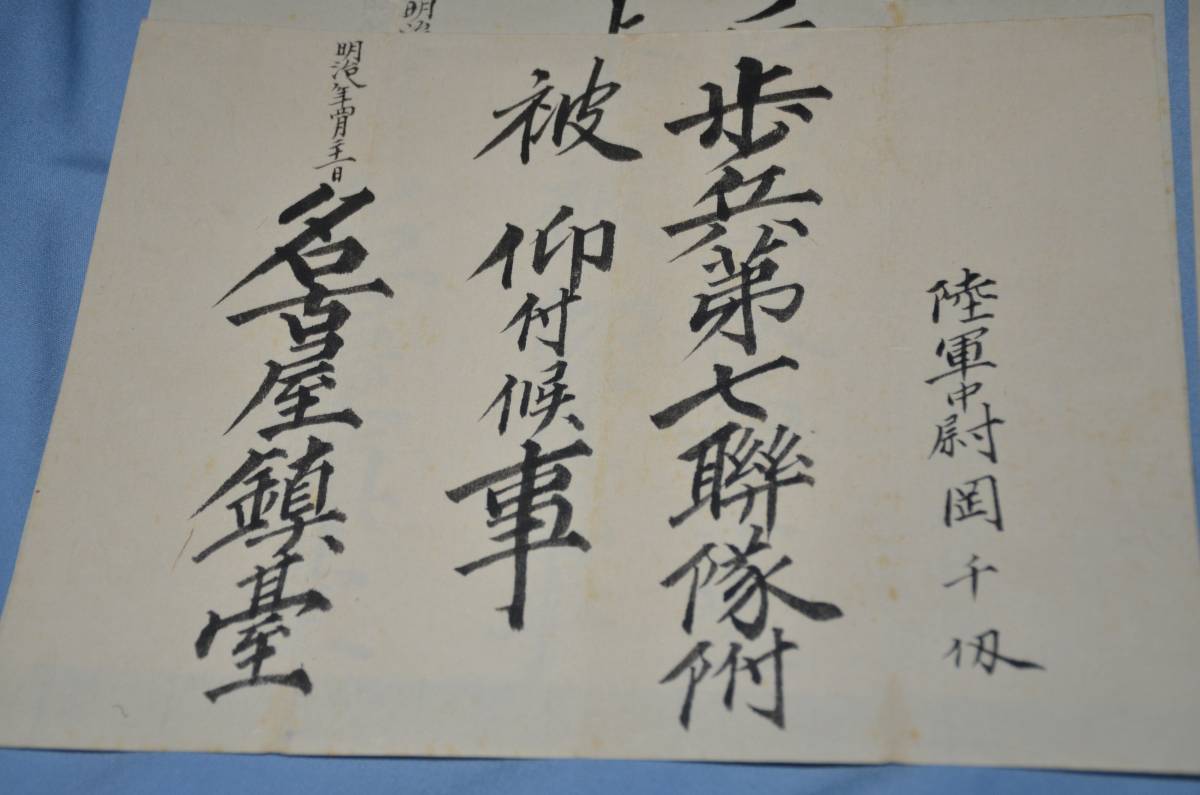 陸軍中尉岡千仭
歩兵第七聯隊附
被仰付候事
明治八年四月二十一日
名古屋鎮臺
明治